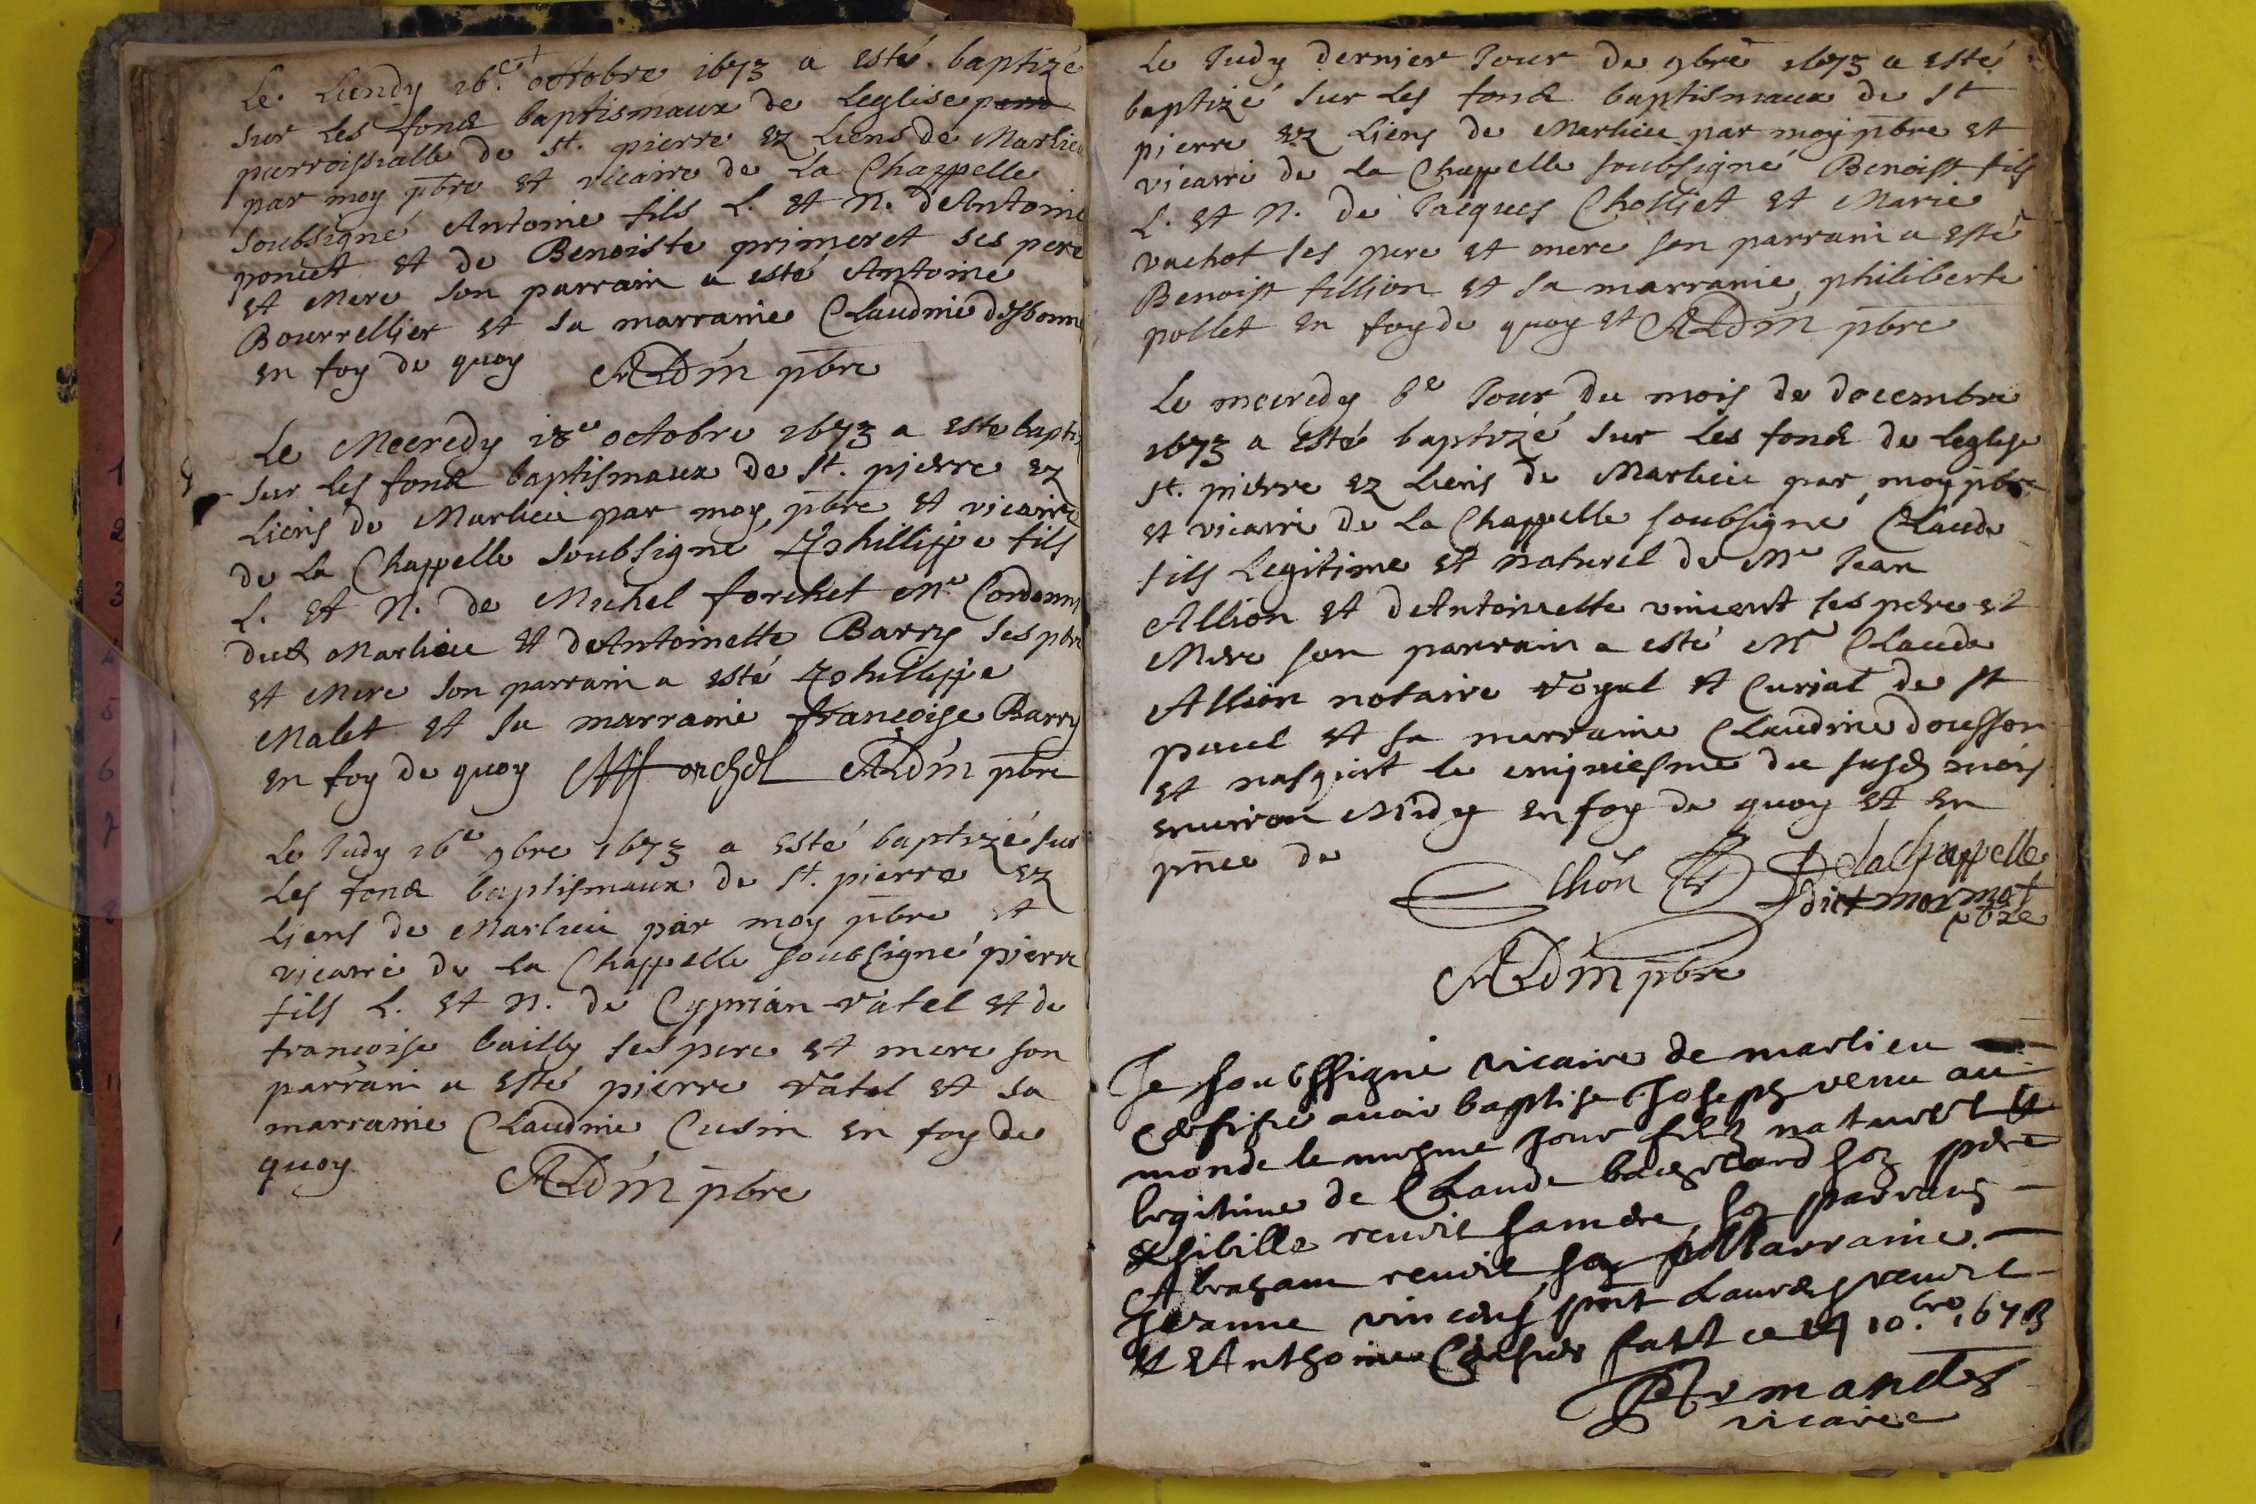 Le Lundy 16e octobre 1673 a esté baptizé
sur les fond baptismaux de Leglise
parroissialle de St. pierre ez Liens de Marlieu
par moy pbre et vicaire de La Chappelle
soubsigné Antoine fils L. et N. dAntoine
poncet et de Benoiste primeret ses pere
et Mere son parrain a esté Antoine
Bourrellier et sa marraine Claudine
en foy de quoy ADm pbre
Le Mecredy 18e octobre 1673 a este bapti
sur les fond baptismaux de St. pierre ez
Liens de Marlieu par moy pbre et vicaire
de La Chappelle soubsigné Phillippe fils
L. et N. de Michel forchet Me Cordonni
dud Marlieu et dAntoinette Barry ses pere
et Mere son parrain a esté Phillippe
Malet et sa marraine françoise Barry
en foy de quoy MForchet ADm pbre
Le Judy 16e 9bre 1673 a esté baptizé sur
Les fond baptismaux de St. pierre ez
Liens de Marlieu par moy pbre et
vicaire de La Chappelle soubsigné pierre
fils L. et N. de Cyprian Vatel et de
françoise bailly ses pere et mere son
parrain a esté pierre Vatel et sa
marraine Claudine Cusin en foy de
quoy ADm pbre
Le Judy dernier Jour de 9bre 1673 a esté
baptizé sur les fond baptismaux de St
pierre ez Liens de Marlieu par moy pbre et
vicaire de La Chappelle soubsigné Benoist fils
L. et N. de Jacques Cholliet et Marie
vachot ses pere et mere son parrain a esté
Benoist fillion et sa marraine philiberte
pollet en foy de quoy et ADm pbre
Le mecredy 6e Jour du mois de decembre
1673 a esté baptizé sur les fond de leglise
St. pierre ez Liens de Marlieu par moy pbre
et vicaire de La Chappelle soubsigné Claude
fils Legitime et naturel de Me Jean
Allion et dAntoinette vincent ses pere et
Mere son parrain a esté Me Claude
Allion notaire Royal et Curial de St
paul et sa marraine Claudine dousson
et nasquit le cinquiesme du susd mois
environ Midy en foy de quoy et en
pnce de
Allion Delachappelle
dict mormat
pbre
ADm pbre
Je soubssigné vicaire de marlieu
certifie avoir baptisé Joseph venu au
monde le mesme jour filz naturel et
legitime de Claude son pere
& sibille revoil sa mere son parrain
Abraham revoil sa Marraine
Jeanne vincent pnt Laurens revoil
et Anthoine fait ce 10.bre 1673
Armandes
vicaire